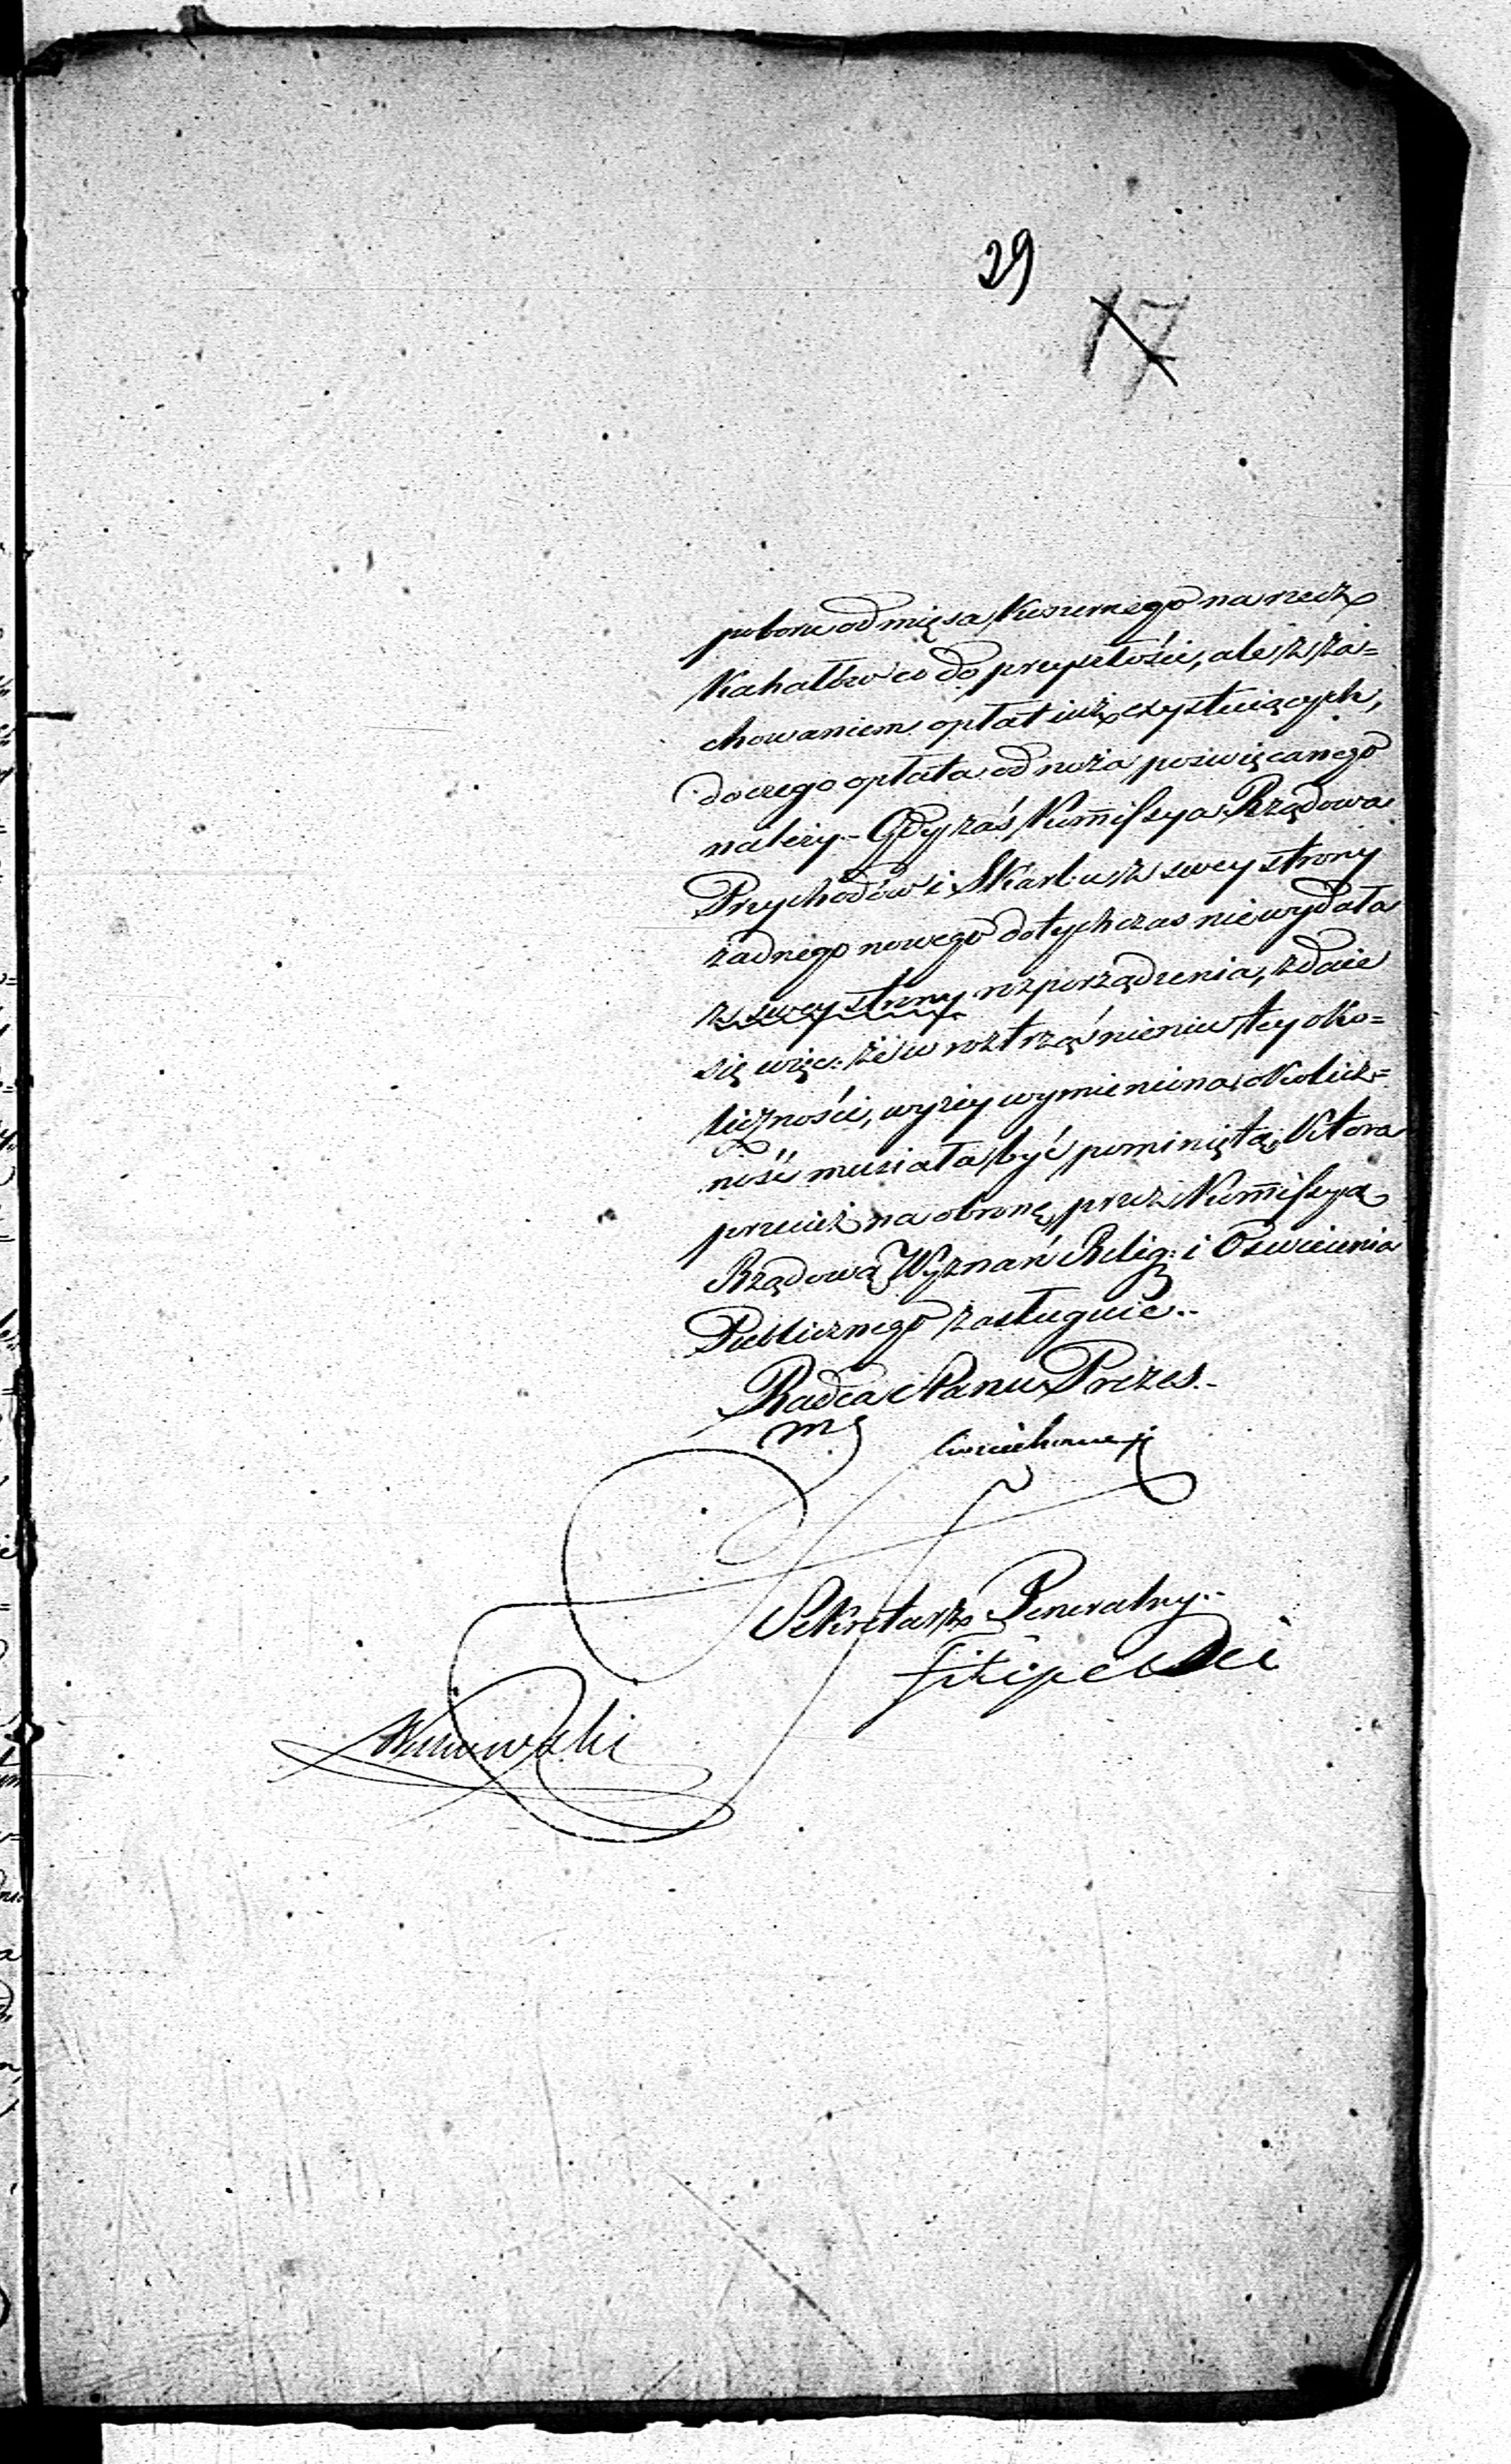 29
17
poboru od mięsa kosernego na rzecz
Kahałów co do przyszłości, ale z za=
chowaniem opłat iuż exystuiących,
do czego opłata od noża poświęcanego
należy.- Gdy zaś Kom̄issya Rządowa
Przychodów i Skarbu z swey strony
żadnego nowego dotychczas niewydała
z swey strony rozporządzenia, zdaie
się więc: że w roztrząśnieniu tey oko=
liczności, wyżey wymieniona okolicz=
ność musiała być pominiętą, która
przecież na obronę przez Kom̄issyą
Rządową Wyznań Relig: i Oświecenia
Publicznego zasługuie.-
Radca Stanu Prezes.-
Sekretarz Generalny.-
Filipecki